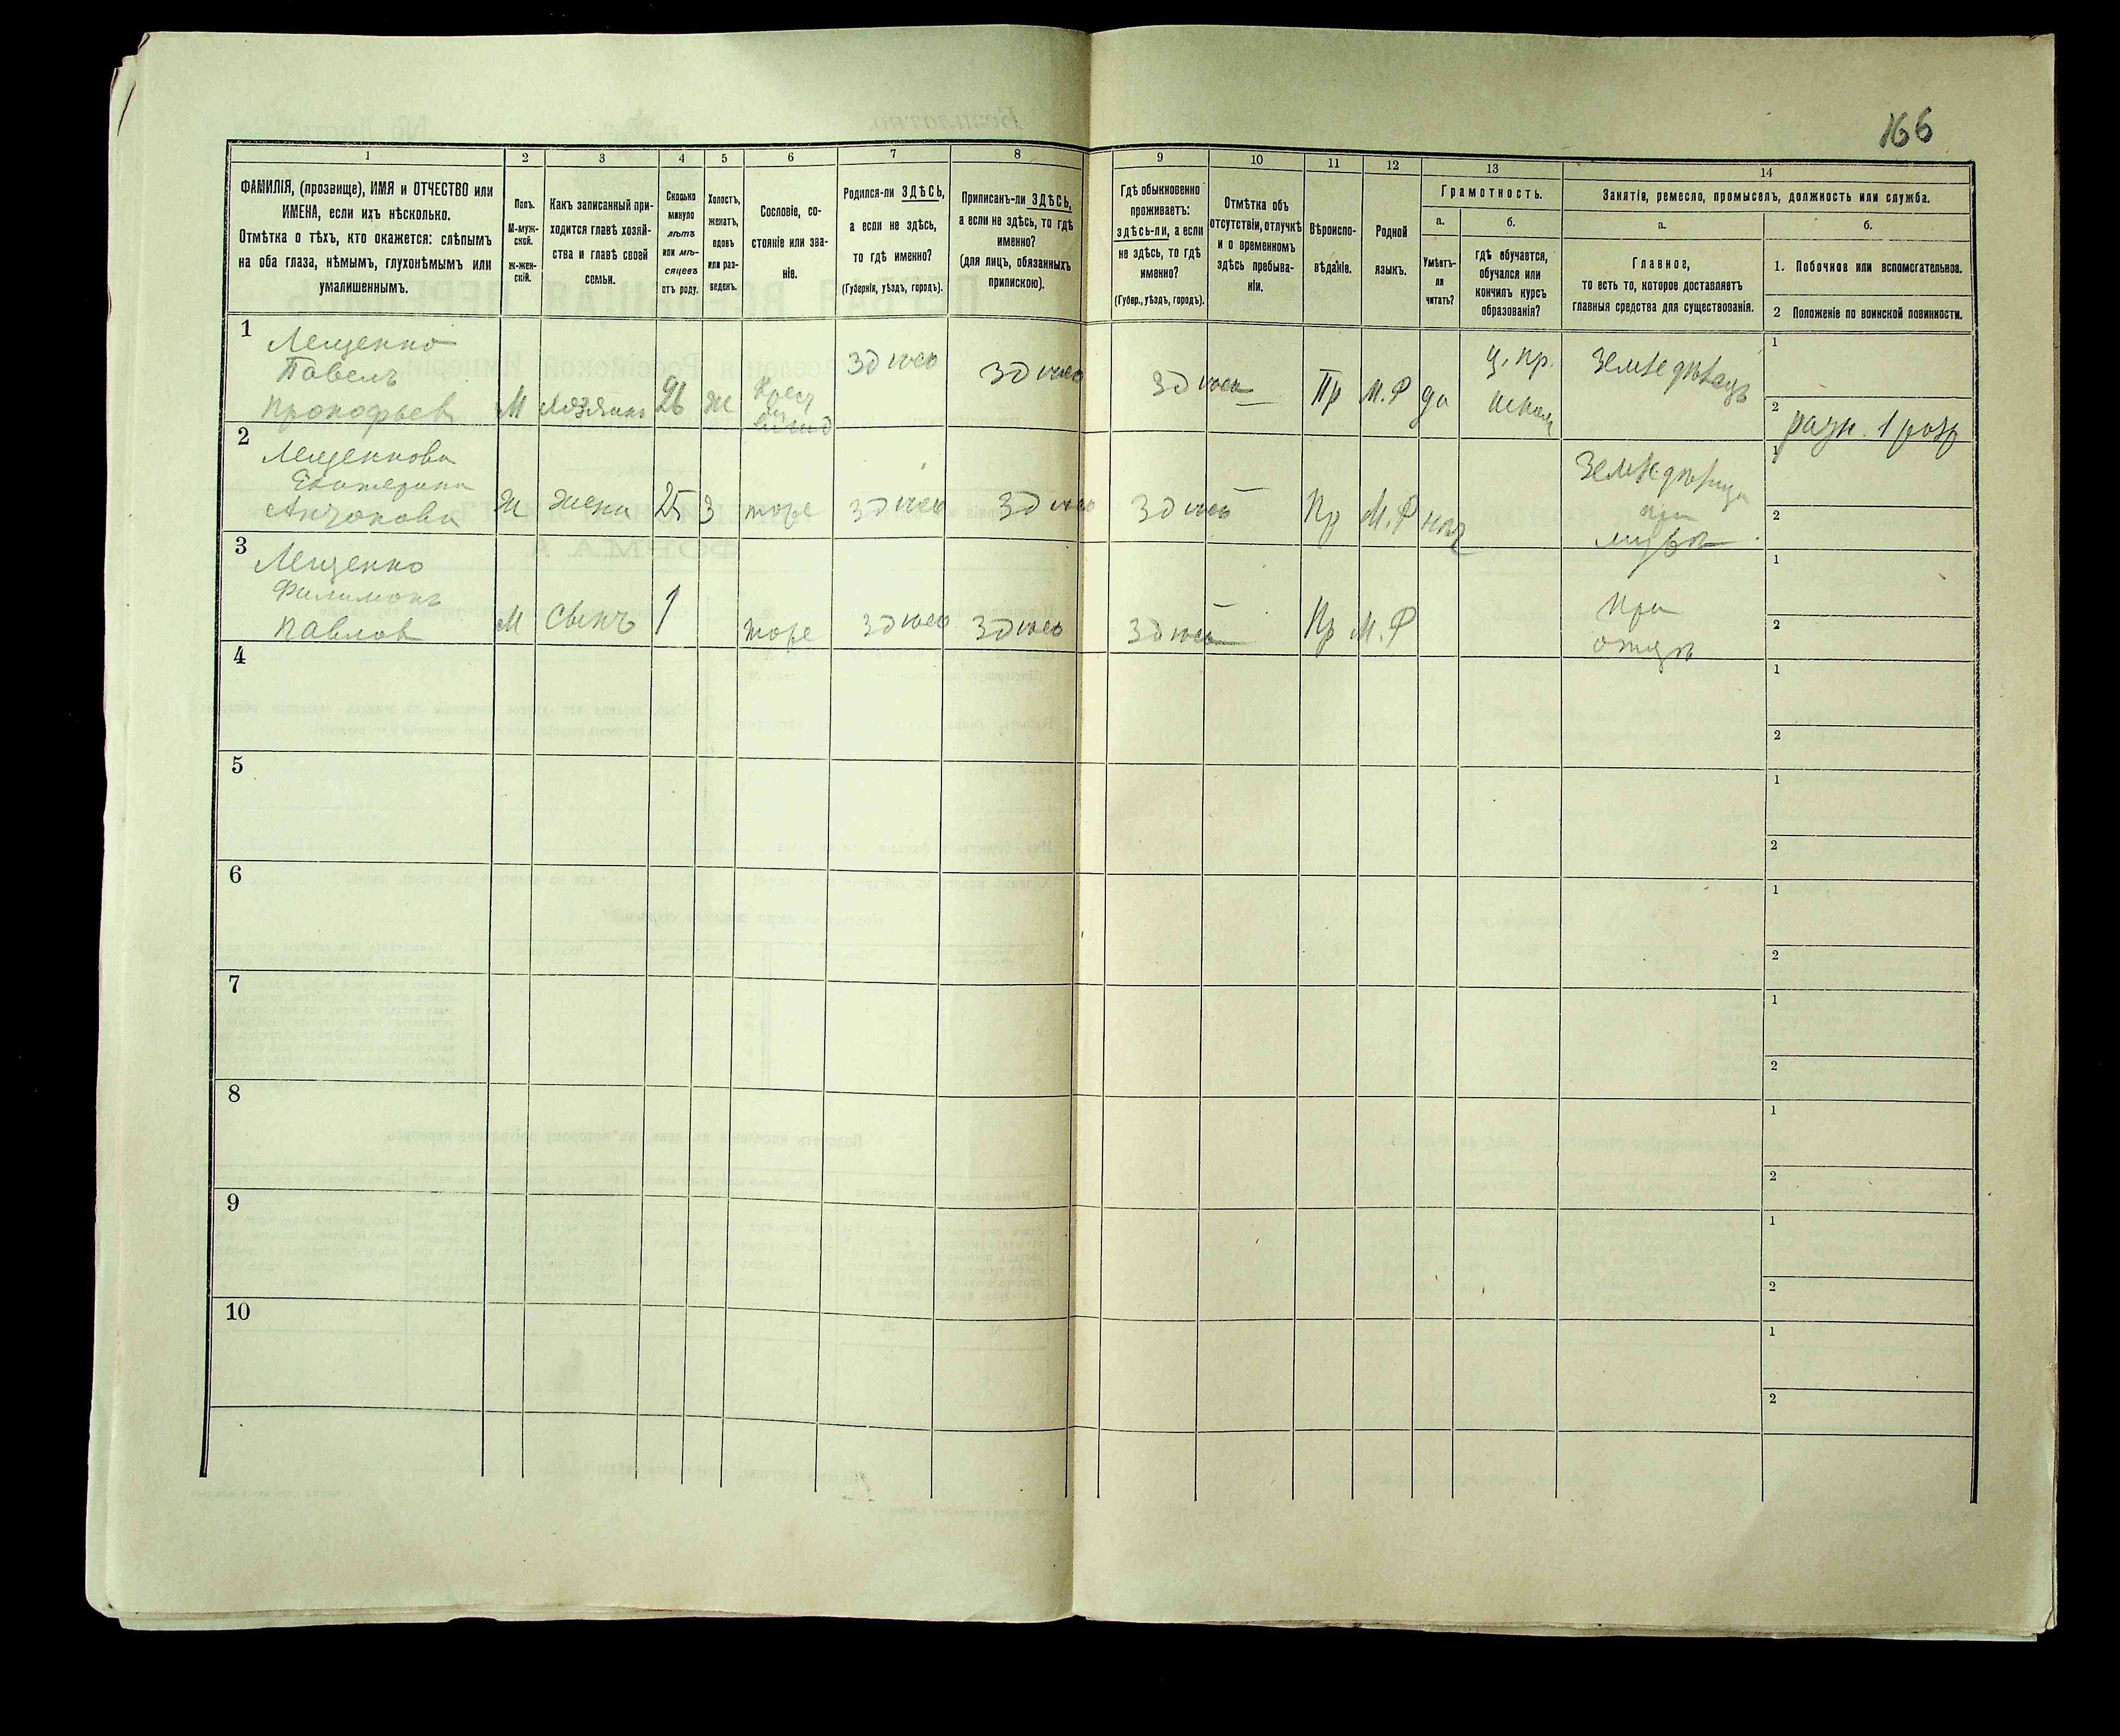 166
1 2 3 4 5 6 7 8 9 10 11 12 13 14
ФАМИЛІЯ, (прозвище), ИМЯ и ОТЧЕСТВО или
ИМЕНА, если ихъ нѣсколько.
Отмѣтка о тѣхъ, кто окажется: слѣпымъ
на оба глаза, нѣмымъ, глухонѣмымъ или
умалишеннымъ.
Полъ.
М-муж-
ской.
Ж-жен-
скій.
Какъ записанный при-
ходится главѣ хозяй-
ства и главѣ своей
семьи.
Сколько
минуло
лѣтъ
или мѣ-
сяцевъ
отъ роду.
Холостъ,
женатъ,
вдовъ
или раз-
веденъ.
Сословіе, со-
стояніе или зва-
ніе.
Родился-ли ЗДѢСЬ,
а если не здѣсь,
то гдѣ именно?
(Губернія, уѣздъ, городъ).
Приписанъ-ли ЗДѢСЬ,
а если не здѣсь, то гдѣ
именно?
(для лицъ, обязанныхъ
припискою).
Гдѣ обыкновенно
проживаетъ:
здѣсь-ли, а если
не здѣсь, то гдѣ
именно?
(Губер., уѣздъ, городъ).
Отмѣтка объ
отсутствіи, отлучкѣ
и о временномъ
здѣсь пребыва-
ніи.
Вѣроиспо-
вѣданіе.
Родной
языкъ.
Грамотность.
а.
Умѣетъ-
ли
читать?
б.
гдѣ обучается,
обучался или
кончилъ курсъ
образованія?
Занятія, ремесло, промыселъ, должность или служба.
а.
Главное,
то есть то, которое доставляетъ
главныя средства для существованія.
б.
1. Побочное или вспомогательное.
2 Положеніе по воинской повинности.
1
Лещенко
Павелъ
Прокофьев М Хозяинъ 26 Ж Крест
здѣсь здѣсь здѣсь — Пр М.Р да
ц. пр.
школ
Земледѣлецъ
1
2
ратн. 1 разр
2
Лещенкова
Екатерина
Антонова Ж жена 25 З тоже здѣсь здѣсь здѣсь — Пр М.Р нѣт
Земледѣлица
при
мужѣ
1
2
3
Лещенко
Филимонъ
Павлов М Сынъ 1 тоже здѣсь здѣсь здѣсь — Пр М.Р
При
отцѣ
1
2
4
1
2
5
1
2
6
1
2
7
1
2
8
1
2
9
1
2
10
1
2